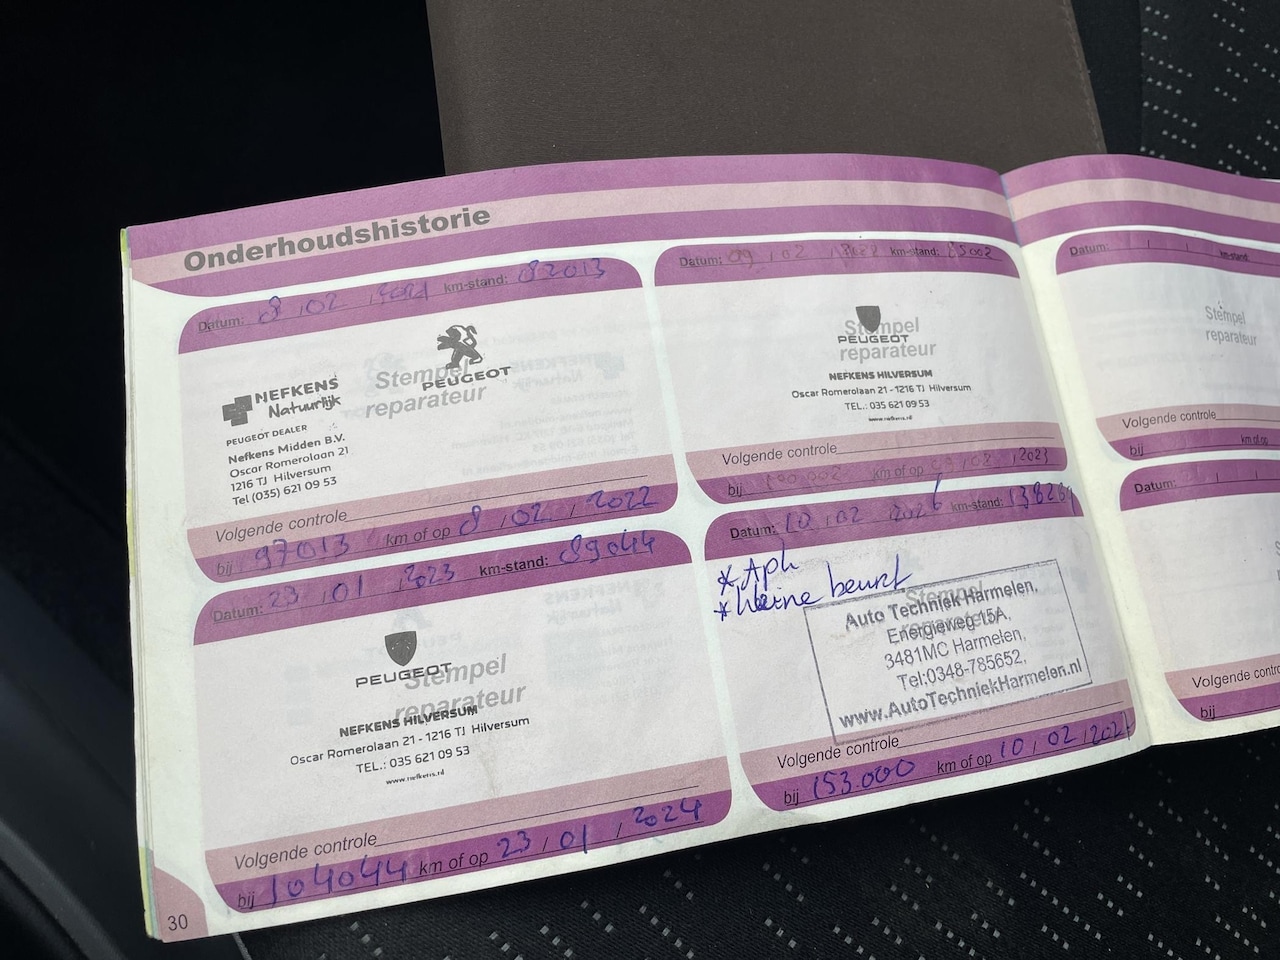 Onderhoudshistorie
Datum: 8 / 02 / 2021 km-stand: 82013
NEFKENS
Natuurlijk
PEUGEOT DEALER
Nefkens Midden B.V.
Oscar Romerolaan 21
1216 TJ Hilversum
Tel (035) 621 09 53
Stempel
reparateur
PEUGEOT
Volgende controle
bij 97013 km of op 8 / 02 / 2022
Datum: 09 / 02 / km-stand:
Stempel
reparateur
PEUGEOT
NEFKENS HILVERSUM
Oscar Romerolaan 21 - 1216 TJ Hilversum
TEL.: 035 621 09 53
www.nefkens.nl
Volgende controle
bij km of op 09 / 02 / 2023
Datum: 23 / 01 / 2023 km-stand: 89044
PEUGEOT
Stempel
reparateur
NEFKENS HILVERSUM
Oscar Romerolaan 21 - 1216 TJ Hilversum
TEL.: 035 621 09 53
www.nefkens.nl
Volgende controle
bij 104044 km of op 23 / 01 / 2024
Datum: 10 / 02 / 2026 km-stand:
* Aph
* kleine beurt
Stempel
reparateur
Auto Techniek Harmelen,
Energieweg 15A,
3481MC Harmelen,
Tel:0348-785652,
www.AutoTechniekHarmelen.nl
Volgende controle
bij 153.000 km of op 10 / 02 /
Datum: km-stand:
Stempel
reparateur
Volgende controle
bij km of op
Datum:
Volgende
bij
30